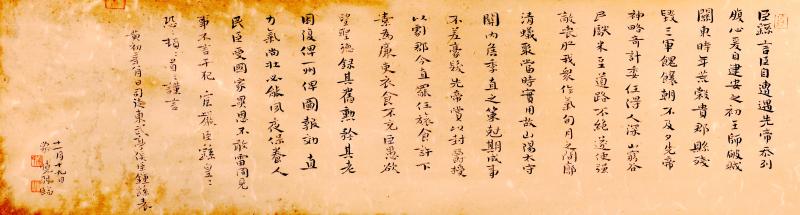 臣繇言臣自遭遇先帝忝列
腹心爰自建安之初王師破賊
關東時年荒穀貴郡縣殘
毀三軍餽饟朝不及夕先帝
神略奇計委任得人深山窮谷
民獻米豆道路不絕遂使強
敵喪膽我眾作氣旬月之間廓
清蟻聚當時實用故山陽太守
關內侯季直之策剋期成事
不差豪髮先帝賞以封爵授
以劇郡今直罷任旅食許下
素為廉吏衣食不充臣愚欲
望聖德錄其舊勳矜其老
困復俾一州俾圖報效直
力氣尚壯必能夙夜保養人
民臣受國家異恩不敢雷同見
事不言干犯宸嚴臣繇皇々
恐々頓々首々謹言
黃初月日司徒東武亭侯臣鍾繇表
十一月十九日